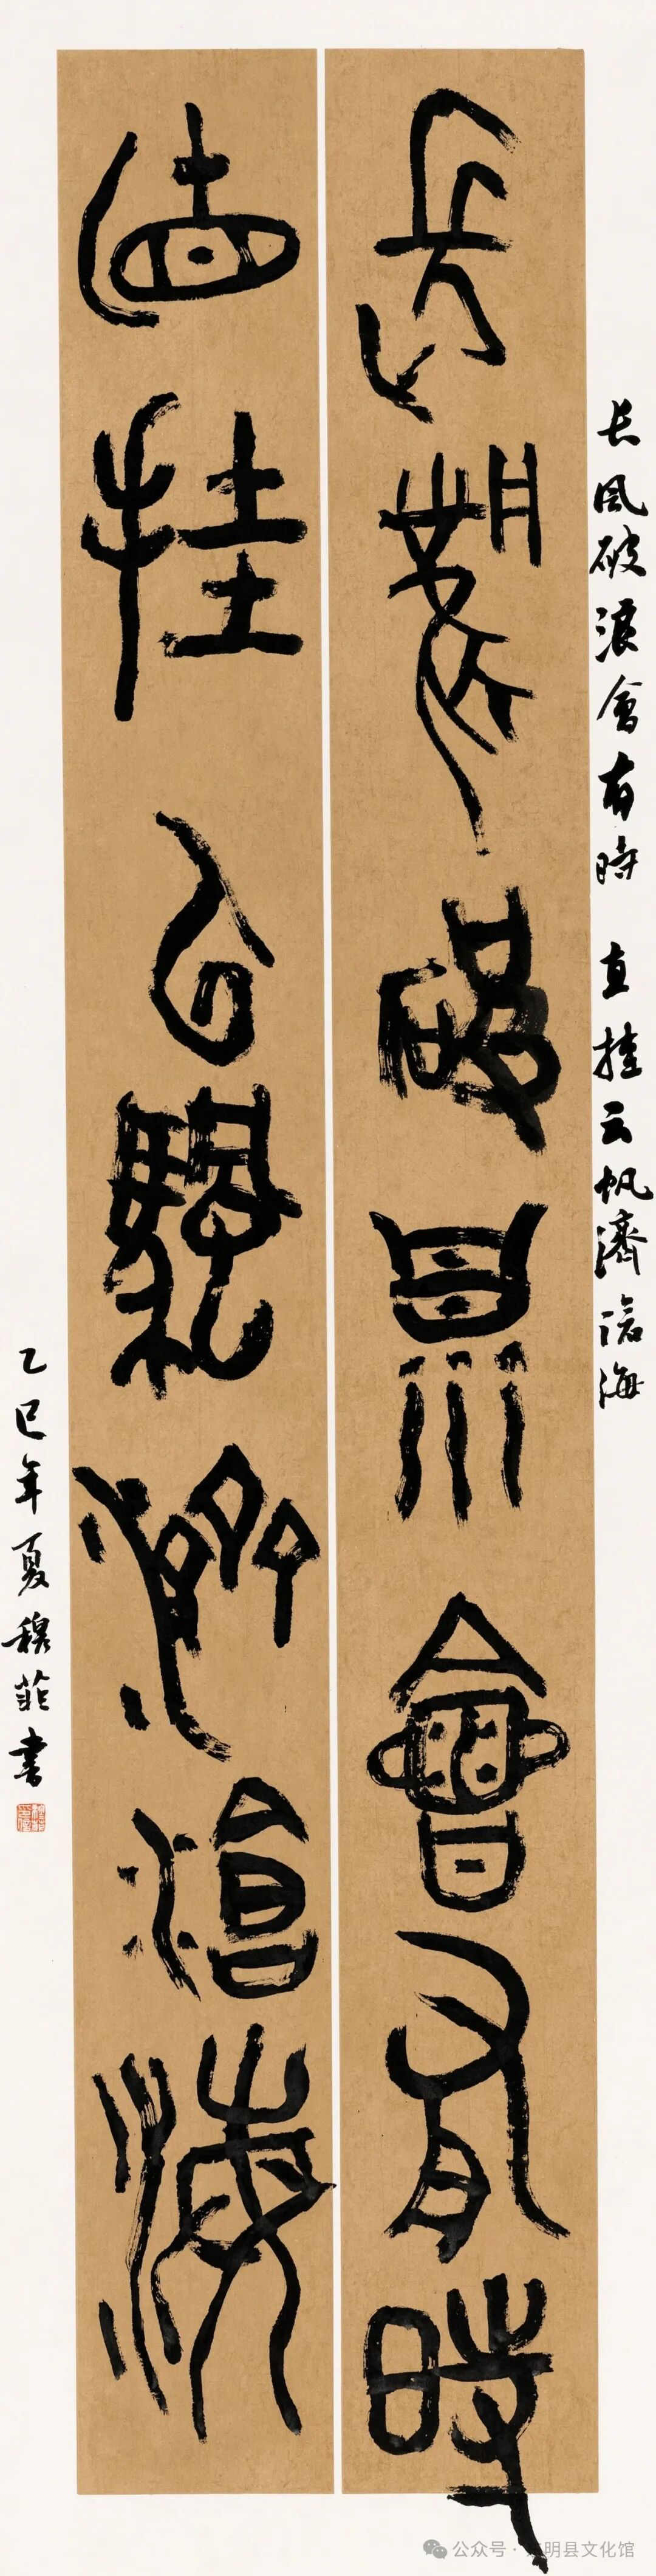 长风破浪会有时 直挂云帆济沧海
長風破浪會有時
直挂云帆濟滄海
乙巳年夏穆菲書
公众号·明县文化馆